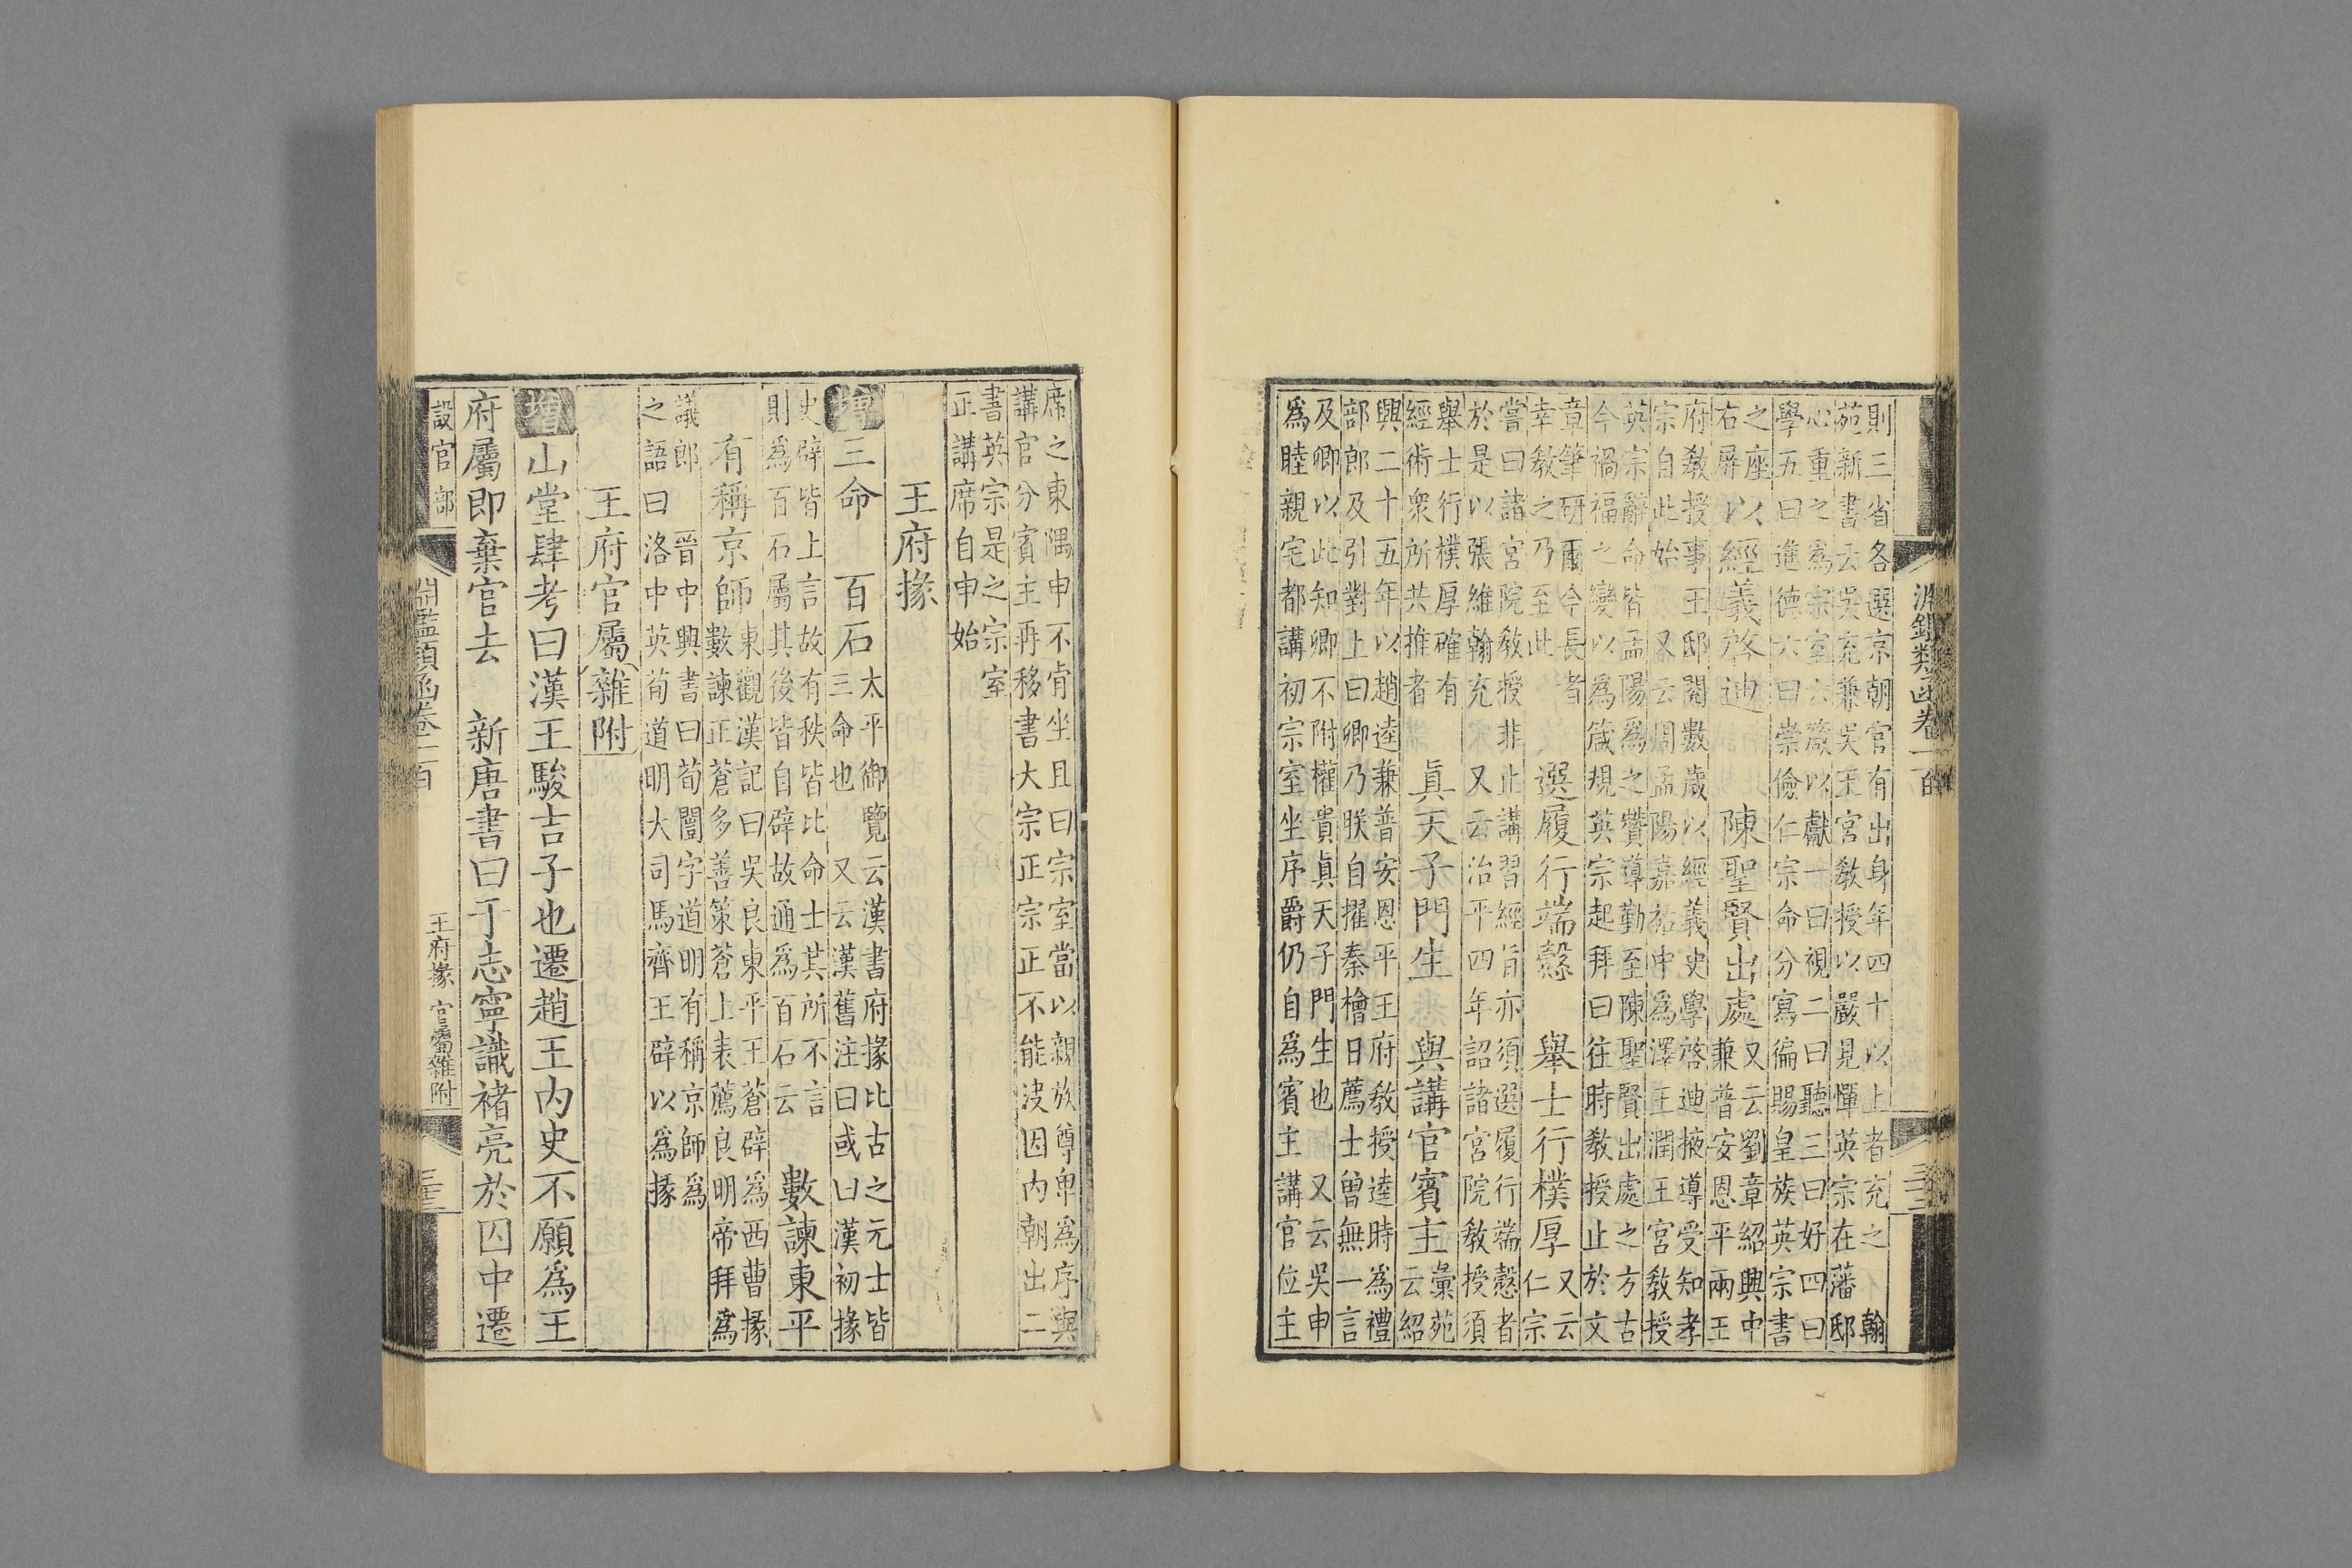 則三省各選京朝官有出身年四十以上者充之 翰
苑新書云吳充兼吳王宮教授以嚴見憚英宗在藩邸
心重之爲宗室六箴以獻一曰視二曰聽三曰好四曰
學五曰進德六曰崇儉仁宗命分寫徧賜皇族英宗書
之座右屏 以經義啓迪 陳聖賢出處 又云劉章紹興中兼普安恩平兩王
府教授事王邸閱數歲以經義史學啓迪掖導受知孝
宗自此始 又云周孟陽嘉祐中爲澤王潤王宮教授
英宗辭命皆孟陽爲之贊導勤至陳聖賢出處之方古
今禍福之變以爲箴規英宗起拜曰往時教授止於文
章筆研爾今長者幸教之乃至此 選履行端慤 舉士行樸厚 又云仁宗
嘗曰諸宮院教授非止講習經旨亦須選履行端慤者
於是以張維翰充 又云治平四年詔諸宮院教授須
舉士行樸厚確有經術衆所共推者 眞天子門生 與講官賓主 彙苑云紹
興二十五年以趙逵兼普安恩平王府教授逵時爲禮
部郎及引對上曰卿乃朕自擢秦檜日薦士曾無一言
及卿以此知卿不附權貴眞天子門生也 又云吳申
爲睦親宅都講初宗室坐序爵仍自爲賓主講官位主
淵鑑類函卷一百
席之東隅申不肯坐且曰宗室當以親族尊卑爲序與
講官分賓主再移書大宗正宗正不能決因內朝出二
書英宗是之宗室
正講席自申始
王府掾
增三命 百石 太平御覽云漢書府掾比古之元士皆三命也 又云漢舊注曰或曰漢初掾
史辟皆上言故有秩皆比命士其所不言
則爲百石屬其後皆自辟故通爲百石云 數諫東平
有稱京師 東觀漢記曰吳良東平王蒼辟爲西曹掾數諫正蒼多善策蒼上表薦良明帝拜爲
議郎 晉中興書曰荀闓字道明有稱京師爲
之語曰洛中英英荀道明大司馬齊王辟以爲掾
王府官屬雜附
增山堂肆考曰漢王駿吉子也遷趙王內史不願爲王
府屬即棄官去 新唐書曰于志寧識褚亮於囚中遷
設官部
淵鑑類函卷一百
王府掾 官屬雜附